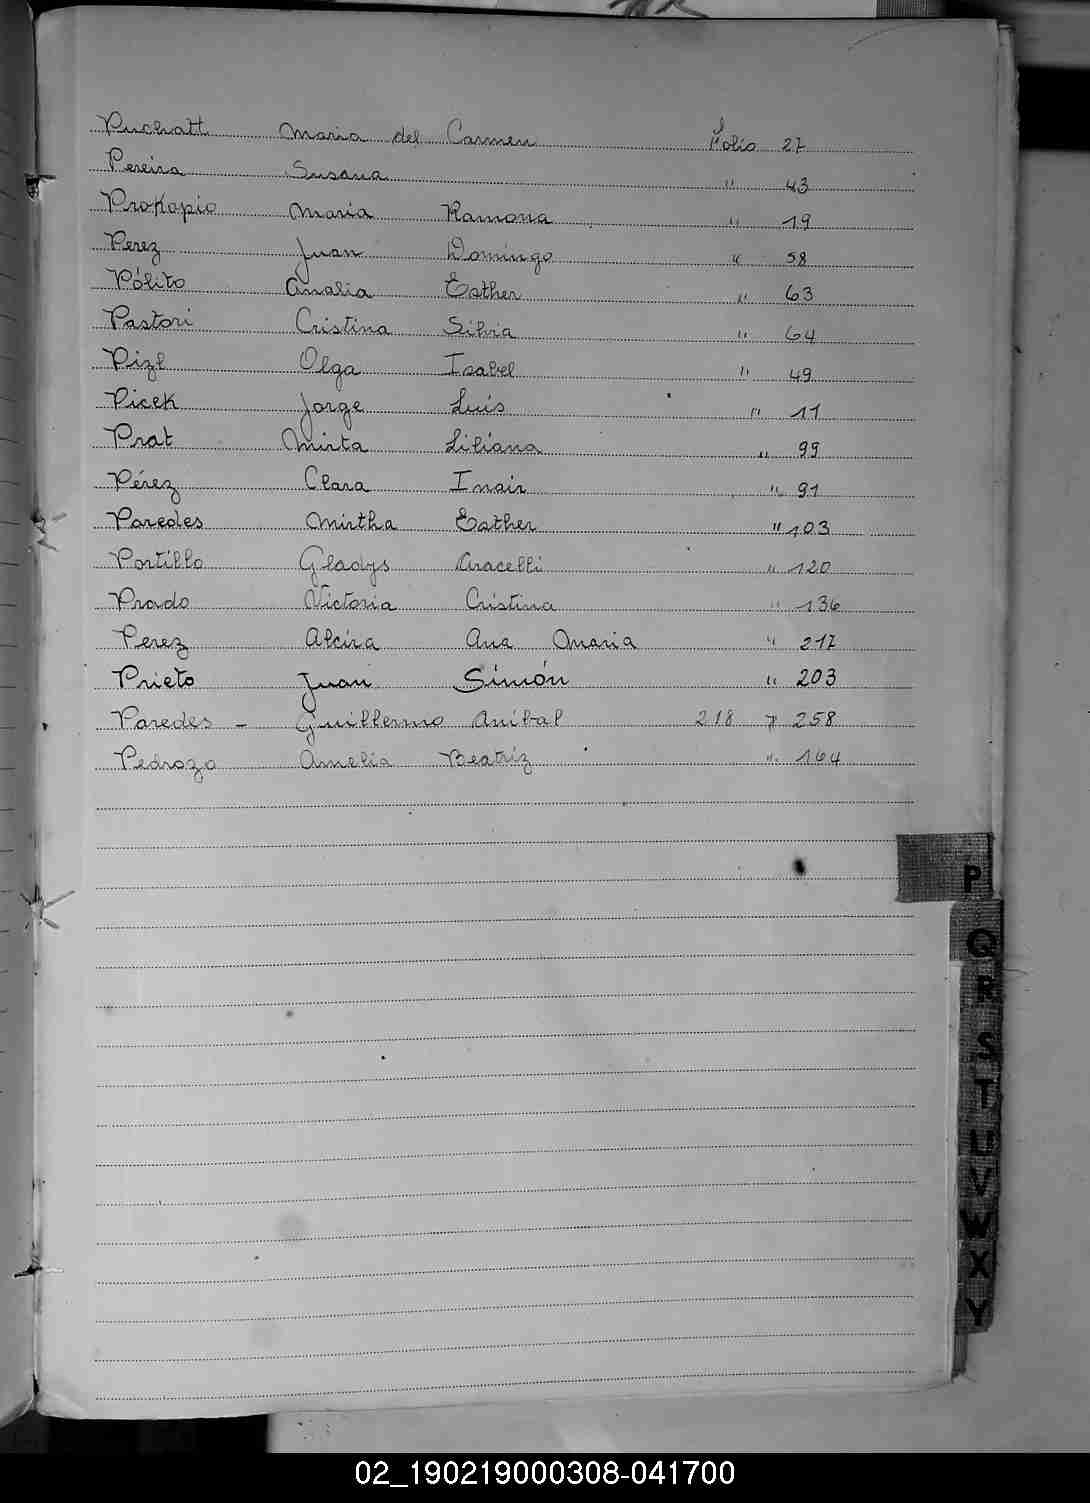 Puchatt Maria del Carmen Folio 27
Pereira Susana " 43
Prokopio Maria Ramona " 19
Perez Juan Domingo " 58
Pólito Analia Esther " 63
Pastori Cristina Silvia " 64
Pizl Olga Isabel " 49
Picek Jorge Luis " 11
Prat Mirta Liliana " 99
Pérez Clara Inair " 91
Paredes Mirtha Esther " 103
Portillo Gladys Aracelli " 120
Prado Victoria Cristina " 136
Perez Alcira Ana Maria " 217
Prieto Juan Simón " 203
Paredes - Guillermo Anibal 218 y 258
Pedrozo Amelia Beatriz " 164
P
Q
R
S
T
U
V
W
X
Y
02_190219000308-041700